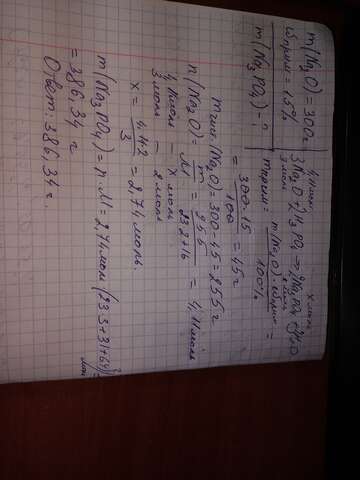 m(Na₂O) = 300г
ωприм = 15%
m(Na₃PO₄) - ?
4,11моль x моль
3Na₂O + 2H₃PO₄ → 2Na₃PO₄ + 3H₂O
3 моль 2 моль
mприм = m(Na₂O)·ωприм / 100% =
= 300·15 / 100 = 45г
mчист (Na₂O) = 300-45 = 255г
n(Na₂O) = m / M = 255 / 23·2+16 = 4,11моль
4,11моль — x моль
3 моль — 2 моль
x = 4,11·2 / 3 = 2,74 моль.
m(Na₃PO₄) = n·M = 2,74моль (23·3+31+64) г/моль
= 386,34 г
Ответ: 386,34г.